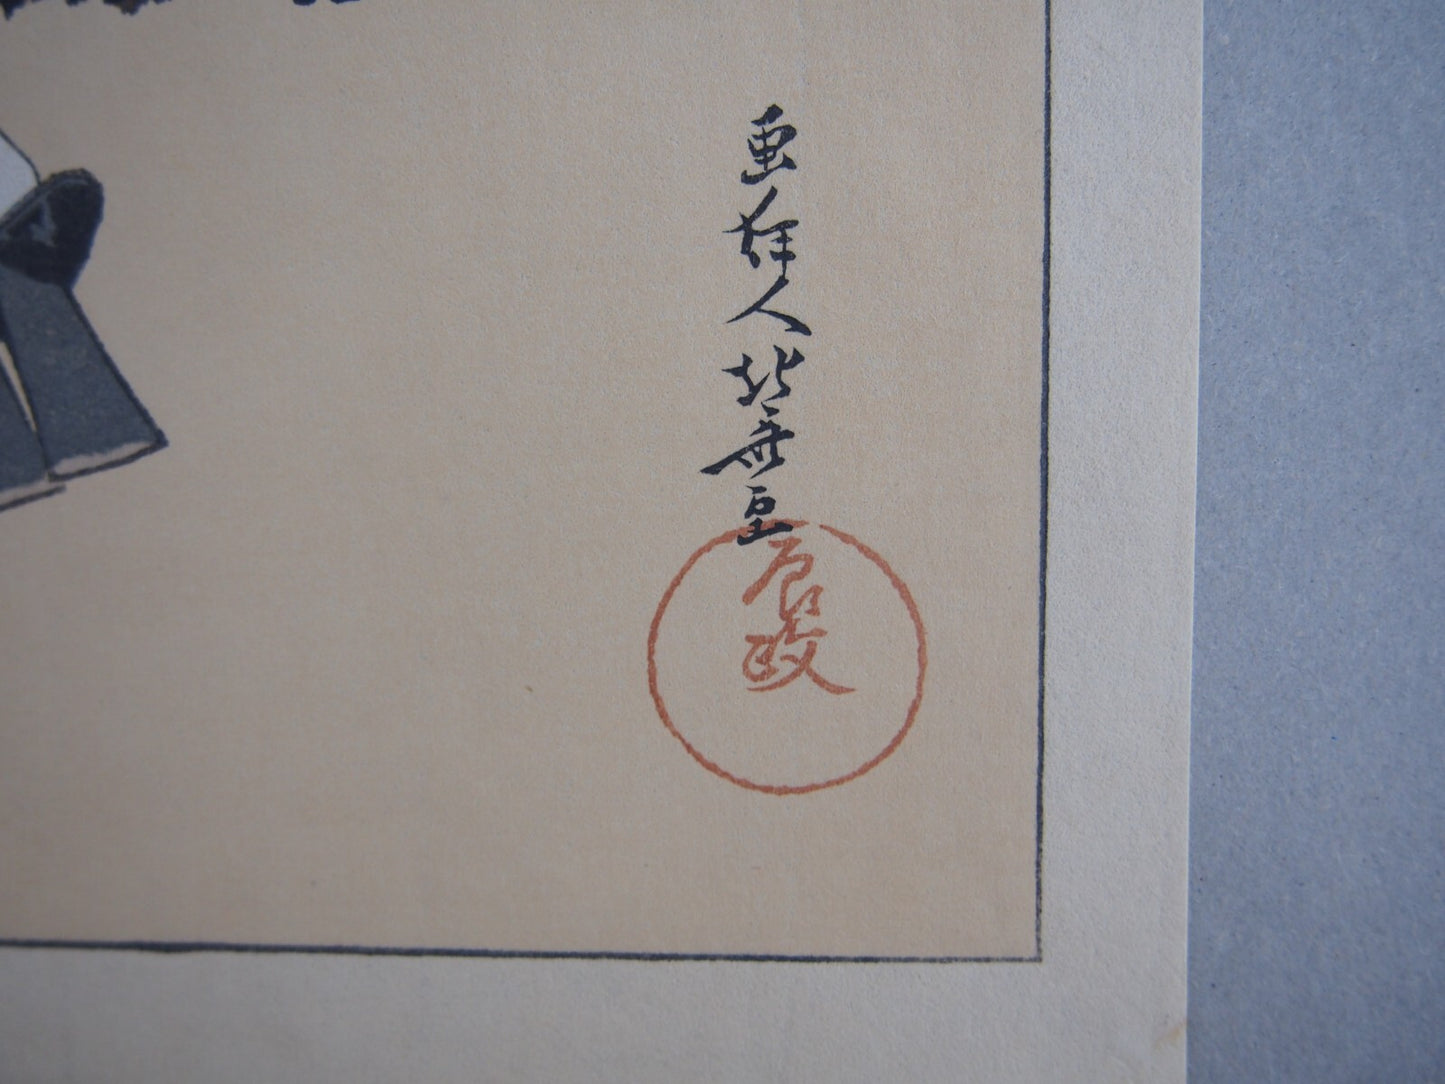 画狂人北斎画
辰政